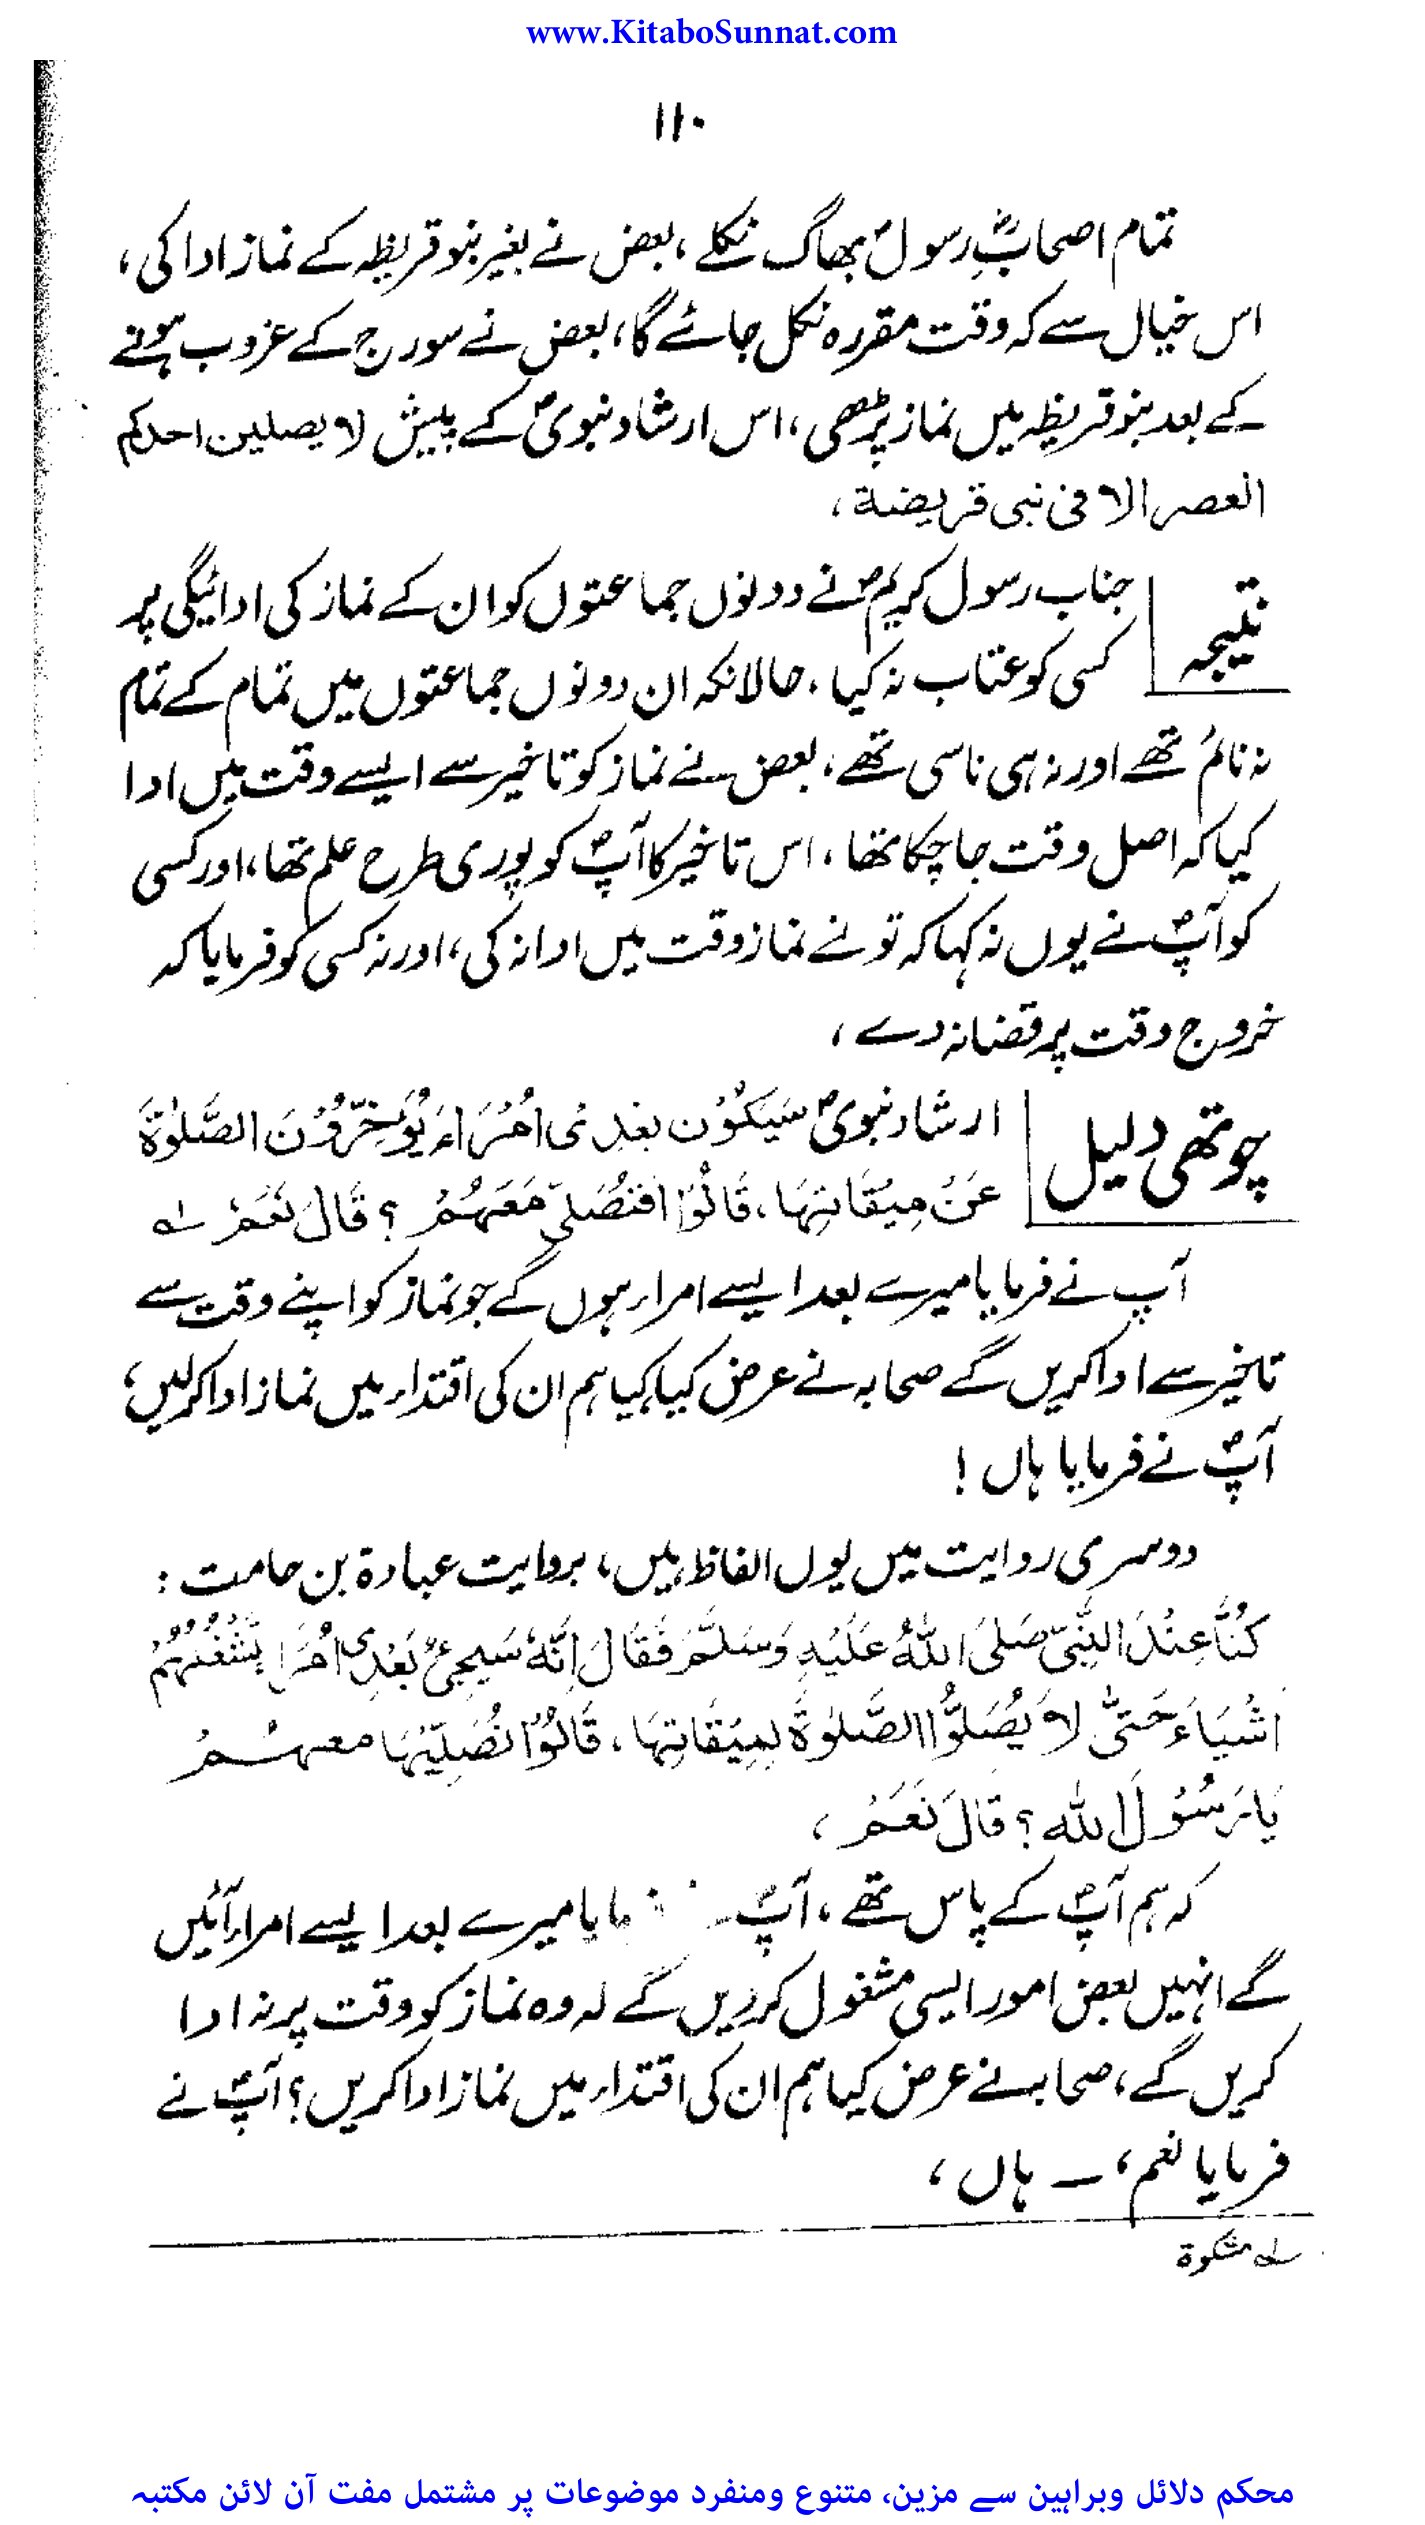 www.KitaboSunnat.com
۱۱۰
تمام اصحابِؓ رسولؐ بھاگ نکلے، بعض نے بغیر بنو قریظہ کے نماز ادا کی،
اس خیال سے کہ وقت مقررہ نکل جائے گا، بعض نے سورج کے غروب ہونے
کے بعد بنو قریظہ میں نماز پڑھی، اس ارشاد نبویؐ کے پیش لا یصلین احدکم
العصر الا فی نبی قریضۃ،
نتیجہ
جناب رسول کریمؐ نے دونوں جماعتوں کو ان کے نماز کی ادائیگی پر
کسی کو عتاب نہ کیا، حالانکہ ان دونوں جماعتوں میں تمام کے تمام
نہ نائم تھے اور نہ ہی ناسی تھے، بعض نے نماز کو تاخیر سے ایسے وقت میں ادا
کیا کہ اصل وقت جا چکا تھا، اس تاخیر کا آپؐ کو پوری طرح علم تھا، اور کسی
کو آپؐ نے یوں نہ کہا کہ تو نے نماز وقت میں ادا نہ کی، اور نہ کسی کو فرمایا کہ
خروج وقت پر قضا نہ دے،
چوتھی دلیل
ارشاد نبویؐ سَیَکُوْن بعْدِیْ اُمَرَاءَ یُوَخِّرُوْنَ الصَّلوٰۃَ
عَنْ مِیْقَاتِہَا، قَالُوْا اَفَنُصَلِّی مَعَہُمْ ؟ قَالَ نَعَمْ ؎۱
آپ نے فرمایا میرے بعد ایسے امراء ہوں گے جو نماز کو اپنے وقت سے
تاخیر سے ادا کریں گے صحابہ نے عرض کیا، کیا ہم ان کی اقتداء میں نماز ادا کر لیں،
آپؐ نے فرمایا ہاں !
دوسری روایت میں یوں الفاظ ہیں، بروایت عبادۃ بن حامت :
کُنَّا عِنْدَ النَّبِیِّ صَلَی اللّٰہُ عَلَیْہِ وَسَلَّمَ فَقَالَ اِنَّہٗ سَیَجِیْءُ بَعْدِی اُمَرَا یَشْغَلُہُمْ
اَشْیَاءَ حَتّٰی لَا یُصَلُّوا الصَّلوٰۃَ لِمِیْقَاتِہَا، قَالُوْا نُصَلِّیْہَا معہُمْ
یَا رَسُوْلَ اللہ ؟ قَالَ نَعَمْ،
کہ ہم آپؐ کے پاس تھے، آپؐ مایا میرے بعد ایسے امراء آئیں
گے انہیں بعض امور ایسی مشغول کر دیں گے کہ وہ نماز کو وقت پر نہ ادا
کریں گے، صحابہ نے عرض کیا ہم ان کی اقتداء میں نماز ادا کریں؟ آپؐ نے
فرمایا نعم، ــ ہاں،
؎۱ مشکوۃ
محکم دلائل وبراہین سے مزین، متنوع ومنفرد موضوعات پر مشتمل مفت آن لائن مکتبہ